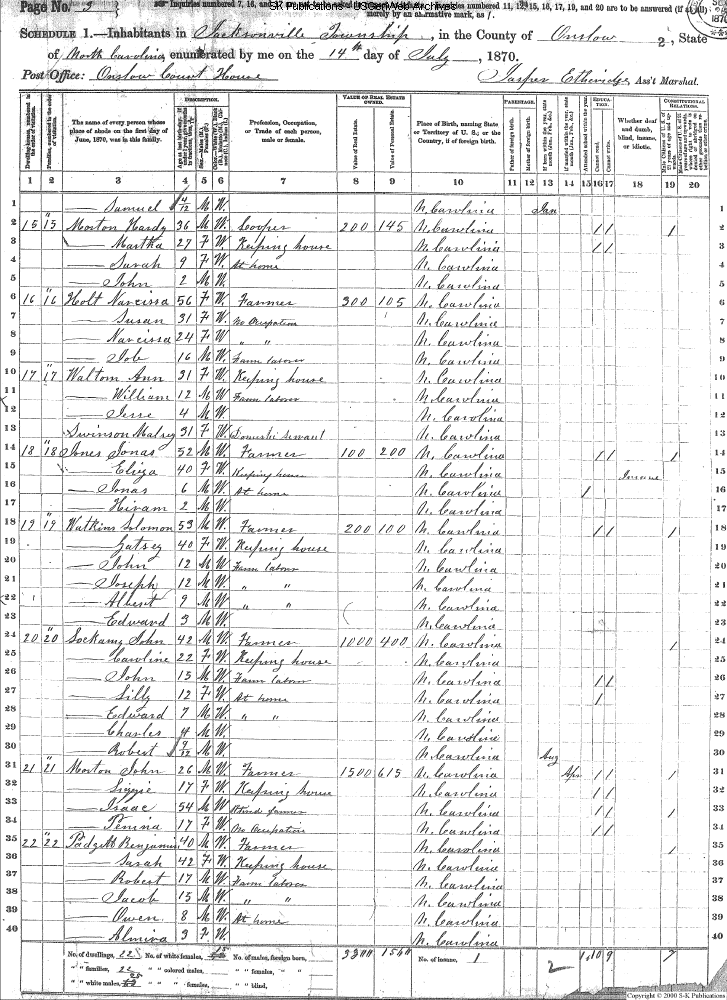 Page No. 3
SK Publications - USGenWeb Archives
Inquiries numbered 7, 16, and 17
numbered 11, 12, 15, 16, 17, 19, and 20 are to be answered (if at all)
merely by an affirmative mark, as /.
SCHEDULE 1.—Inhabitants in Jacksonville Township, in the County of Onslow, State
of North Carolina, enumerated by me on the 14th day of July, 1870.
Post Office: Onslow Court House
Jasper Etheridge, Ass't Marshal.
DESCRIPTION. VALUE OF REAL ESTATE OWNED. PARENTAGE. EDUCATION. CONSTITUTIONAL RELATIONS.
The name of every person whose place of abode on the first day of June, 1870, was in this family.
Profession, Occupation, or Trade of each person, male or female.
Value of Real Estate.
Value of Personal Estate.
Place of Birth, naming State or Territory of U. S.; or the Country, if of foreign birth.
Father of foreign birth.
Mother of foreign birth.
Attended school within the year.
Cannot read.
Cannot write.
Whether deaf and dumb, blind, insane, or idiotic.
1 2 3 4 5 6 7 8 9 10 11 12 13 14 15 16 17 18 19 20
1 — Samuel 4/12 M W. N. Carolina Jan 1
2 15 15 Morton Hardy 36 M W. Cooper 200 145 N. Carolina / / / 2
3 — Martha 27 F W. Keeping house N. Carolina / / 3
4 — Sarah 9 F W. At home N. Carolina 4
5 — John 2 M W. N. Carolina 5
6 16 16 Holt Narcissa 56 F W. Farmer 300 105 N. Carolina 6
7 — Susan 31 F W. No Ocupation N. Carolina 7
8 — Narcissa 24 F W " " N. Carolina 8
9 — Job 16 M W. Farm labor N. Carolina 9
10 17 17 Waltom Ann 31 F W. Keeping house N. Carolina 10
11 — William 12 M W Farm labor N. Carolina 11
12 — Jesse 4 M W. N. Carolina 12
13 Swinson 31 F W. Domestic servant N. Carolina 13
14 18 18 Jones Jonas 52 M W. Farmer 100 200 N. Carolina / / / 14
15 — Eliza 40 F W. Keeping house N. Carolina Insane 15
16 — Jonas 6 M W. At home N. Carolina / 16
17 — Hiram 2 M W. N. Carolina 17
18 19 19 Watkins Solomon 53 M W. Farmer 200 100 N. Carolina / / / 18
19 — Gatsey 40 F W. Keeping house N. Carolina 19
20 — John 12 M W. Farm labor N. Carolina 20
21 — Joseph 12 M W. " " N. Carolina 21
22 — Albert 9 M W. " " N. Carolina 22
23 — Edward 3 M W. N. Carolina 23
24 20 20 Sockamy John 42 M W. Farmer 1000 400 N. Carolina / 24
25 — Caroline 22 F W. Keeping house N. Carolina 25
26 — John 15 M W. Farm labor N. Carolina / / 26
27 — Silly 12 F W. At home N. Carolina / 27
28 — Edward 7 M W. " " N. Carolina 28
29 — Charles 4 M W. N. Carolina 29
30 — Robert 9/12 M W. N. Carolina Aug 30
31 21 21 Morton John 26 M W. Farmer 1500 615 N. Carolina Apr / / / 31
32 — Lizzie 17 F W. Keeping house N. Carolina / / 32
33 — Isaac 54 M W. Retired farmer N. Carolina / / / 33
34 — Penina 17 F W. No Ocupation N. Carolina / / 34
35 22 22 Padgett Benjamin 40 M W. Farmer N. Carolina / 35
36 — Sarah 42 F W. Keeping house N. Carolina 36
37 — Robert 17 M W. Farm labor N. Carolina 37
38 — Jacob 15 M W. " " N. Carolina 38
39 — Owen 8 M W. At home N. Carolina 39
40 — Almira 3 F W. N. Carolina 40
No. of dwellings, 22 No. of white females, 15 No. of males, foreign born, 3300 1560 No. of insane, 1 2 1 10 9 7
" " families, 22 " " colored males, " " females, " "
" " white males, 25 " " " females, " " blind,
Copyright © 2000 S-K Publications